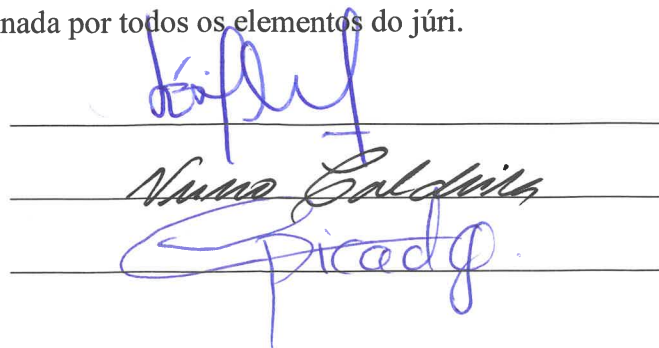 nada por todos os elementos do júri.
Nuno Caldeira
Picado